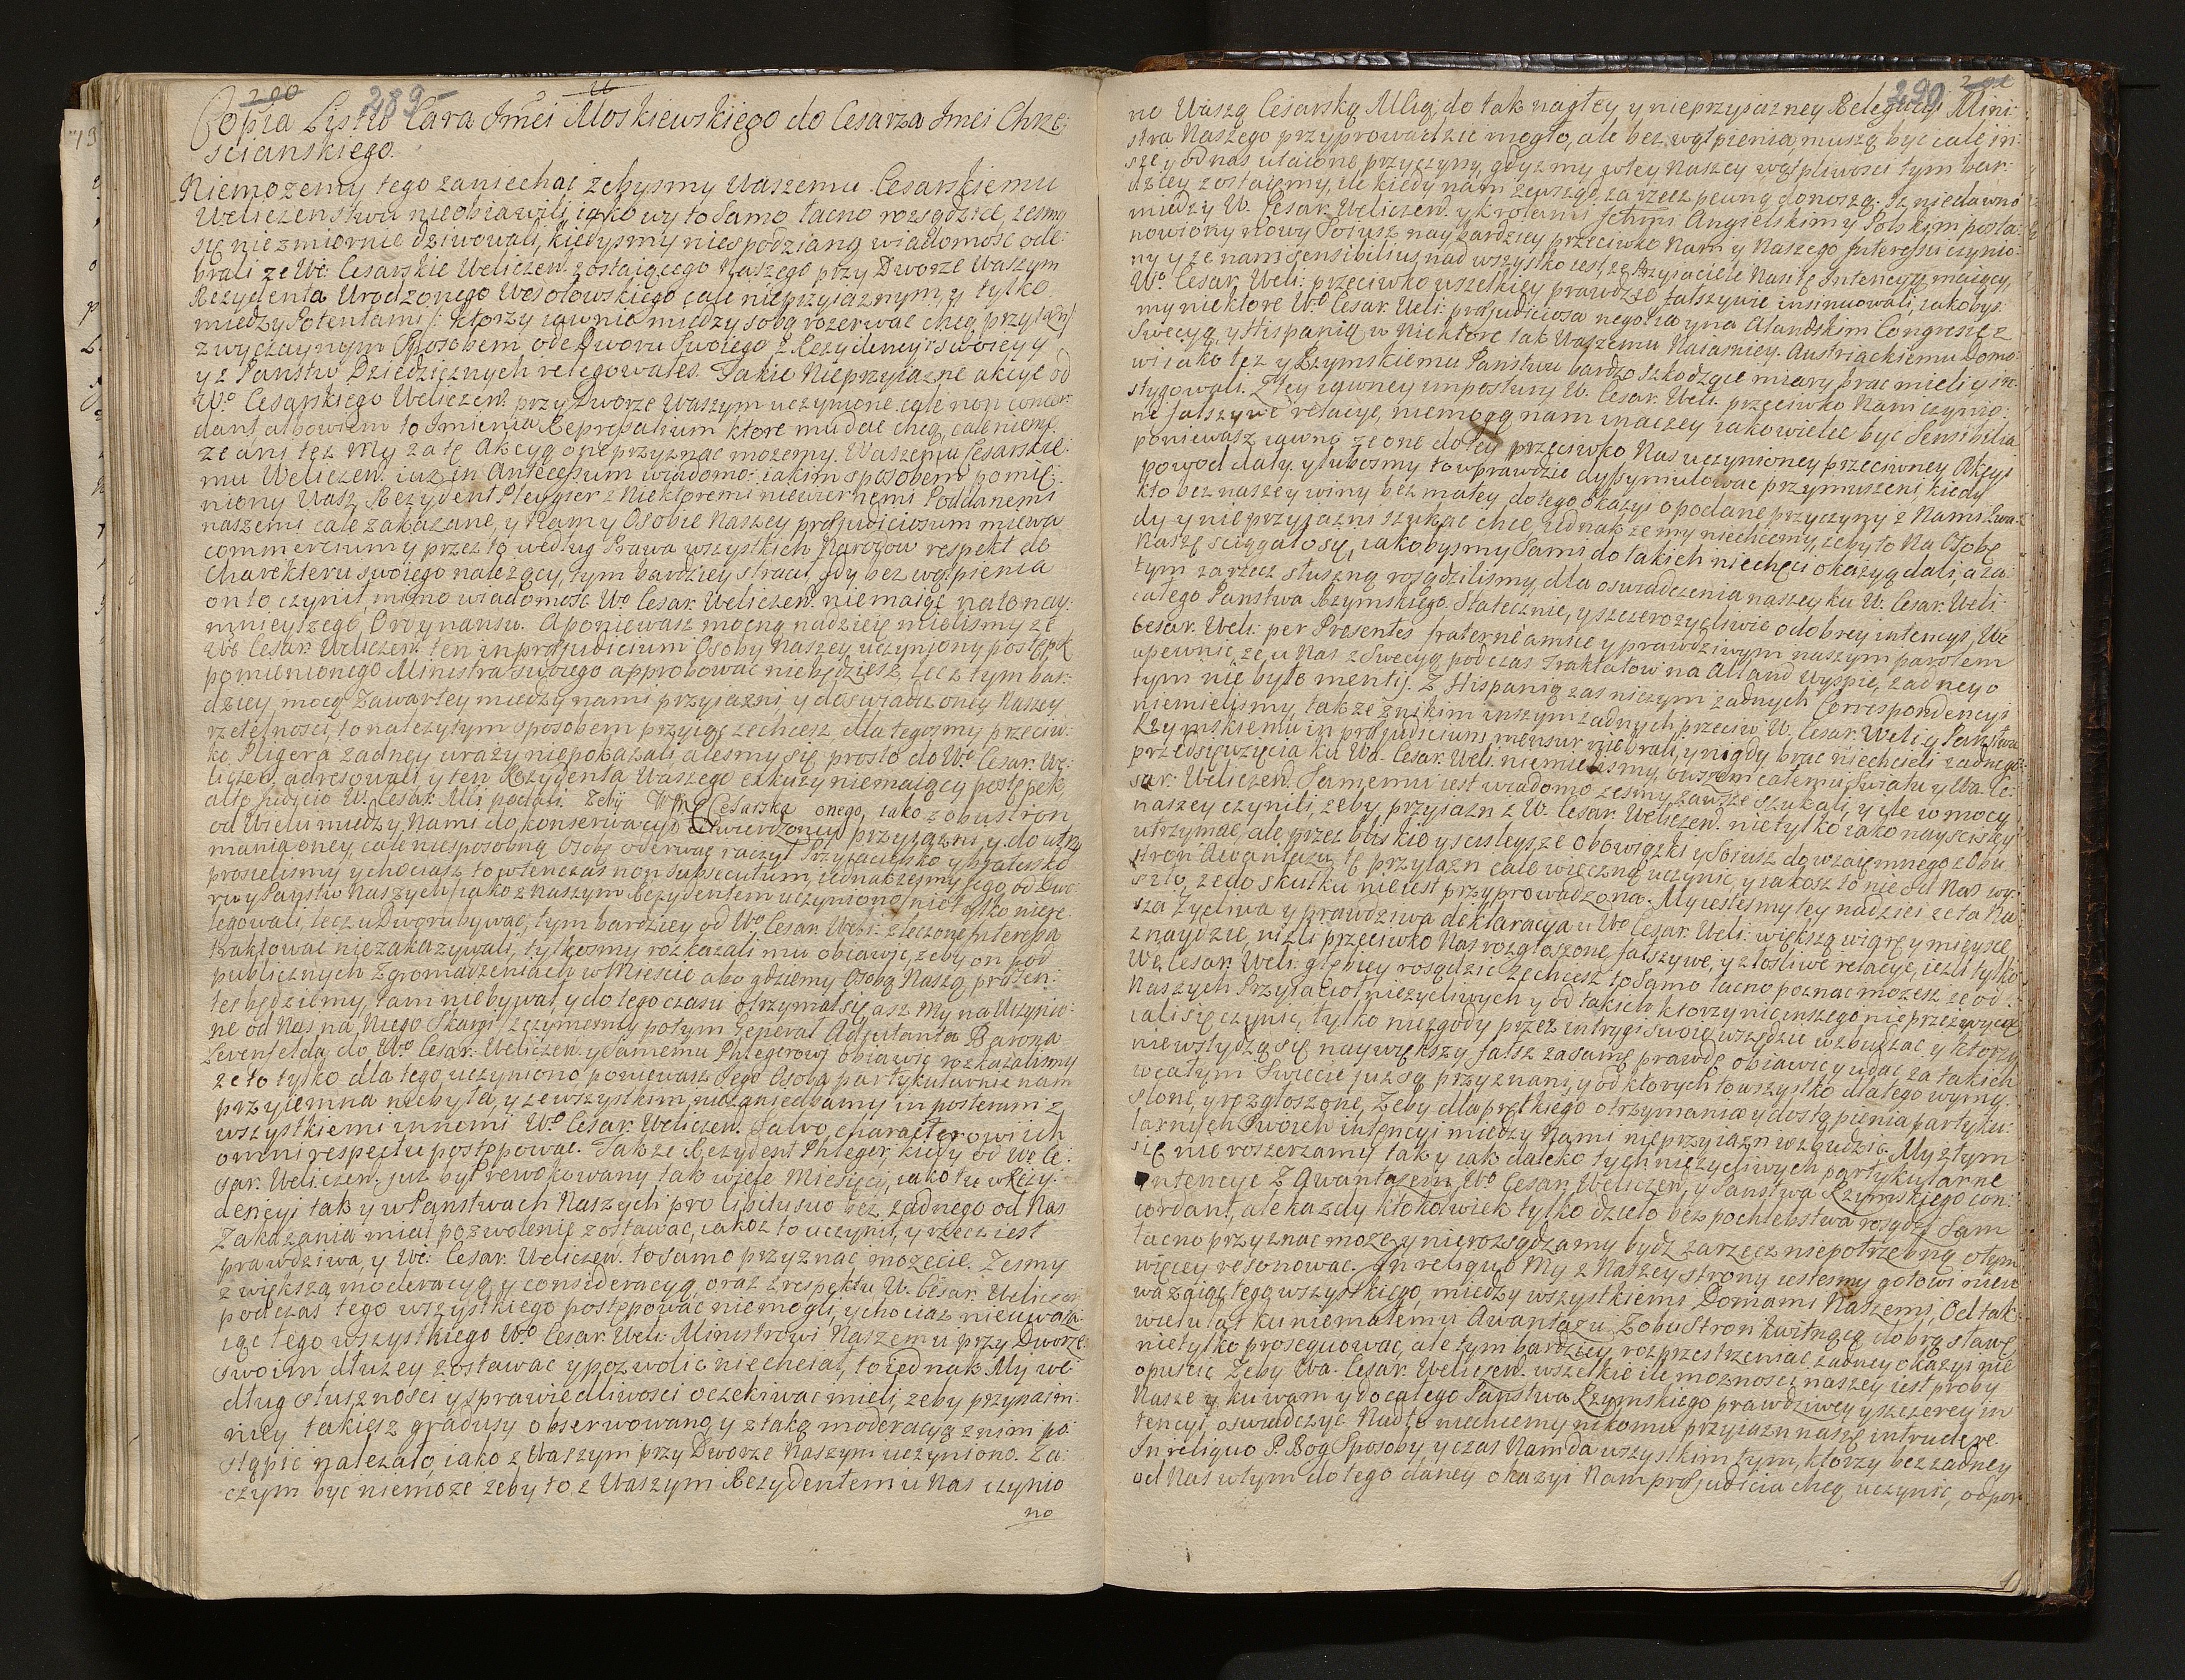 290 289
Copia Listu Cara Jmci Moskiewskiego do Cesarza Jmci Chrze:
scianskiego.
Niemozemy tego zaniechac zebysmy Waszemu Cesarskiemu
Weliczenstwu nieobiawili, iako wy to Samo łacno rozsądzicie, zesmy
się niezmiernie dziwowali, kiedysmy niespodzianą wiadomosc ode:
brali ze We: Cesarskie Weliczen. zostaiącego Naszego przy Dworze Waszym
Rezydenta Urodzonego Wesołowskiego cale nieprzyiaznym, y tylko
między Potentami /: ktorzy iawnie między sobą rozerwac chcą przyiazn/
zwyczaynym Sposobem ode Dworu Swoiego z Rezydencyi swoiey y
y z Panstw Dziedzicznych relegowałes. Takie Nieprzyiazne akcye od
Wo Cesarskiego Weliczen. przy Dworze Waszym uczynione cale non concor:
dant albowiem to Imienia Represalium ktore mu dac chcą, cale niemy:
ze ani tez My za tę Akcyą one przyznac mozemy. Waszemu Cesarskie:
mu Weliczen. iuz in Antecessum wiadomo: iakim sposobem pomię:
niony Wasz Rezydent Pleygier z Niektoremi niewiernemi Poddanemi
naszemi cale zakazane, y Nam y Osobie Naszey præjudiciosum miewa
commercium y przez to według Prawa wszystkich Narodow respekt do
Charekteru swoiego nalezący, tym bardziey stracił, gdy bez wątpienia
on to czynił, mimo wiadomosc Wo Cesar. Weliczen. niemaiąc na to nay:
mnieyszego Ordynansu. A poniewasz mocną nadzieię mielismy ze
We Cesar. Weliczen. ten in præjudicium Osoby Naszey uczyniony postępek
pomienionego Ministra swoiego approbowac niebędziesz, lecz tym bar:
dziey mocą Zawartey między nami przyiazni, y doswiadczoney Naszey
rzetelnosci, to nalezytym sposobem przyiąc zechcesz, dla tegosmy przeciw:
ko Pligera zadney urazy niepokazali, alesmy się prosto do Wo Cesar. We:
liczen. adresowali, y ten Rezydenta Waszego exkuzy niemaiący postępek,
alto judicio W. Cesar. Mci podali. Zeby W. M. Cesarska onego, iako z obustron
od Wielu między Nami do konserwacyi utwierdzoney przyiazni, y do utrzy
mania oney, cale niesposobną Osobę oderwac raczył Przyiacielsko y bratersko
prosielismy y chociasz to wtenczas non subsecutum, iednakzesmy Jego, od Dwo:
ru y Panstw Naszych /:iako z Naszym Rezydentem uczyniono/ nie tylko niere
legowali, lecz u Dworu bywac, tym bardziey od Wo Cesar. Weli: zleczone Interesa
traktowac niezakazywali, tylkosmy rozkazali mu obiawic, zeby on pod
publicznych Zgromadzeniach w Miescie abo gdziemy Osobą Naszą præsen:
tes będziemy, tam niebywał, y do tego czasu otrzymał się, asz My na Uczynio:
ne od Nas na Niego Skargi, z czymesmy potym General Adjutanta Barona
Levenfelda do Wo Cesar. Weliczen. y Samemu Phlegerowi obiawic rozkazalismy
ze to tylko dla tego uczyniono, poniewasz Jego Osoba partykularnie nam
przyiemna niebyła, y ze wszystkim niezaniedbamy in posterum z
wszystkiemi innemi Wo Cesar. Weliczen. Salvo, characterowi ich
omni respectu postępowac. Takze Rezydent Phleger, kiedy od We Ce:
sar. Weliczen. juz był rewokowany tak wiele Miesięcy, iako tu w Rezy:
dencyi tak y w Panstwach Naszych pro libitu suo bez zadnego od Nas
Zakazania miał pozwolenie zostawac, iakoz to uczynił, y rzecz iest
prawdziwa, y We: Cesar. Weliczen. to samo przyznac mozecie. Zesmy
z większą moderacyą, y consideracyą, oraz z respektu W. Cesar. Weliczen.
podczas tego wszystkiego postępowac niemogli, y chociaz nieuwaza
iąc tego wszystkiego Wo Cesar. Weli: Ministrowi Naszemu przy Dworze
swoim dłuzey zostawac y pozwolic niechciał, to iednak My we:
dług słusznosci y sprawiedliwosci oczekiwac mieli, zeby przynaim:
niey takiesz gradusy obserwowano, y z taką moderacyą z nim po:
stąpic nalezało, iako z Waszym przy Dworze Naszym uczyniono. Za:
czym byc niemoze zeby to z Waszym Rezydentem u Nas czynio
no
290 291
no Waszą Cesarską Mcią, do tak nagłey y nieprzyiazney Relegacyi Mini:
stra Naszego przyprowadzic mogło, ale bez wątpienia, muszą byc cale in:
sze y od nas utaione przyczyny, gdyz my w tey Naszey wątpliwosci tym bar:
dziey zostaiemy, ile kiedy nam zewsząd za rzecz pewną donoszą. Iz niedawno
między W. Cesar. Weliczen. y Krolami Ichmi Angielskim y Polskim posta:
nowiony nowy Soiusz naybardziey przeciwko Nam y Naszego Interessu czynio:
ny y ze nam sensibilius nad wszystko iest, ze Przyiaciele Nasi tę Intencyą maiący,
Wo. Cesar. Weli: przeciwko wszelkiey prawdzie fałszywie insinuowali, iakobys:
my niektore Wo Cesar. Weli: præjudiciosa negotia y na Alandskim Congresie z
Swecyą y Hispanią w Niektore tak Waszemu Naiasniey. Austriackiemu Domo:
wi iako tez y Rzymskiemu Panstwu bardzo szkodzące miary brac mieli y in:
stygowali. Z tey iawney impostury W. Cesar. Weli. przeciwko Nam czynio:
ne fałszywe relacye, niemogą nam inaczey iako wielce byc Sensibilia
poniewasz iawno ze one do tey przeciwko Nas uczynioney przeciwney Akcyi
powod dały. y lubosmy to wprawdzie dyssymulowac przymuszeni kiedy
kto bez naszey winy bez małey do tego okazyi opodane przyczyny z Nami zwa:
dy y nieprzyjazni szukac chce, iednak ze my niechcemy, zeby to na Osobę
Naszę sciągało się, iakobysmy Sami do takich niechęci okazyą dali, a za
tym za rzecz słuszną rosądzilismy, dla oswiadczenia naszey ku W. Cesar. Weli:
całego Panstwa Rzymskiego. Statecznie, y szczerozyczliwie o dobrey intencyi, We
Cesar. Weli: per Præsentes fraterne amice y prawdziwym naszym parolem
upewnic, ze u Nas z Swecyą podczas Traktatow na Alland Wyspie, zadney o
tym nie było mentij. Z Hispanią zas niczym zadnych Correspondencyi
niemielismy, takze z nikim inszym zadnych przeciw W. Cesar. Weli: y Panstwu
Rzymskiemu in præjudicium mensur nie brali, y nigdy brac niechcieli zadnego
przedsięwzięcia ku Wa. Cesar. Weli. niemielismy, owszem całemu Swiatu y Wa. Ce:
sar. Weliczen. Samemu iest wiadomo zesmy zawsze szukali, y ile w mocy
naszey czynili, zeby przyiazn z W. Cesar. Weliczen. nie tylko iako nayscisley
utrzymac, ale przez bliskie y scisleysze obowiązki y Soiusz do wzaiemnego z Obu
stron Awantazu tę przyiazn cale wieczną uczynic, y iakosz to nie od Nas wy:
szło, ze do skutku nie iest przyprowadzona. My iestesmy tey nadziei ze ta Na:
sza Zyczliwa y prawdziwa deklaracya u Wo Cesar. Weli: większą wiarę y mieysce
znaydzie, nizli przeciwko Nas rozgłoszone, fałszywe, y złosliwe relacye, iezli tylko
We. Cesar. Weli: głębiey rosądzic zechcesz, to Samo łacno poznac mozesz ze od
Naszych Przyiacioł niezyczliwych y od takich ktorzy nic inszego nie przezwycza
iali się czynic, tylko niezgody przez intrygi swoie wszędzie wzbudzac y ktorzy
niewstydzą się naywiększy fałsz za samę prawdę obiawic y udac za takich
w całym Swiecie juz są przyznani, y od ktorych to wszystko dlatego wymy:
slone, y rozgłoszone, Zeby dla prętkiego otrzymania y dostąpienia partyku:
larnych Swoich intencyi między Nami nieprzyiazn wzbudzic. My z tym
się nie roszerzamy tak y iak daleko tych niezyczliwych partykularne
Intencye Z Awantazem, Wo Cesar. Weliczen. y Panstwa Rzymskiego con:
cordant, ale kazdy ktokolwiek tylko dzieło bez pochlebstwa rosądzi Sam
łacno przyznac moze, y nierozsądzamy bydz za rzecz niepotrzebną o tym
więcey resonowac. In reliquo My z Naszey strony iestesmy gotowi nieu
wazaiąc tego wszystkiego, między wszystkiemi Domami Naszemi, Od tak
wielu lat ku niemałemu Awantazu z obu Stron kwitnącą dobrą sławę
nie tylko prosequowac, ale tym bardziey rozprzestrzeniac zadney okazyi nie
opuscic Zeby Wa. Cesar. Weliczen. wszelkie ile moznosci naszey iest proby
Nasze y, ku wam y do całego Panstwa Rzymskiego prawdziwey y szczerey in
tencyi, oswiadczyc. Nadto niechcemy nikomu przyiazn naszę intrudere.
In reliquo P. Bog Sposoby y czas Nam da wszystkim tym, ktorzy bez zadney
od Nas w tym do tego daney okazyi Nam præjudicia chcą uczynic, odpor